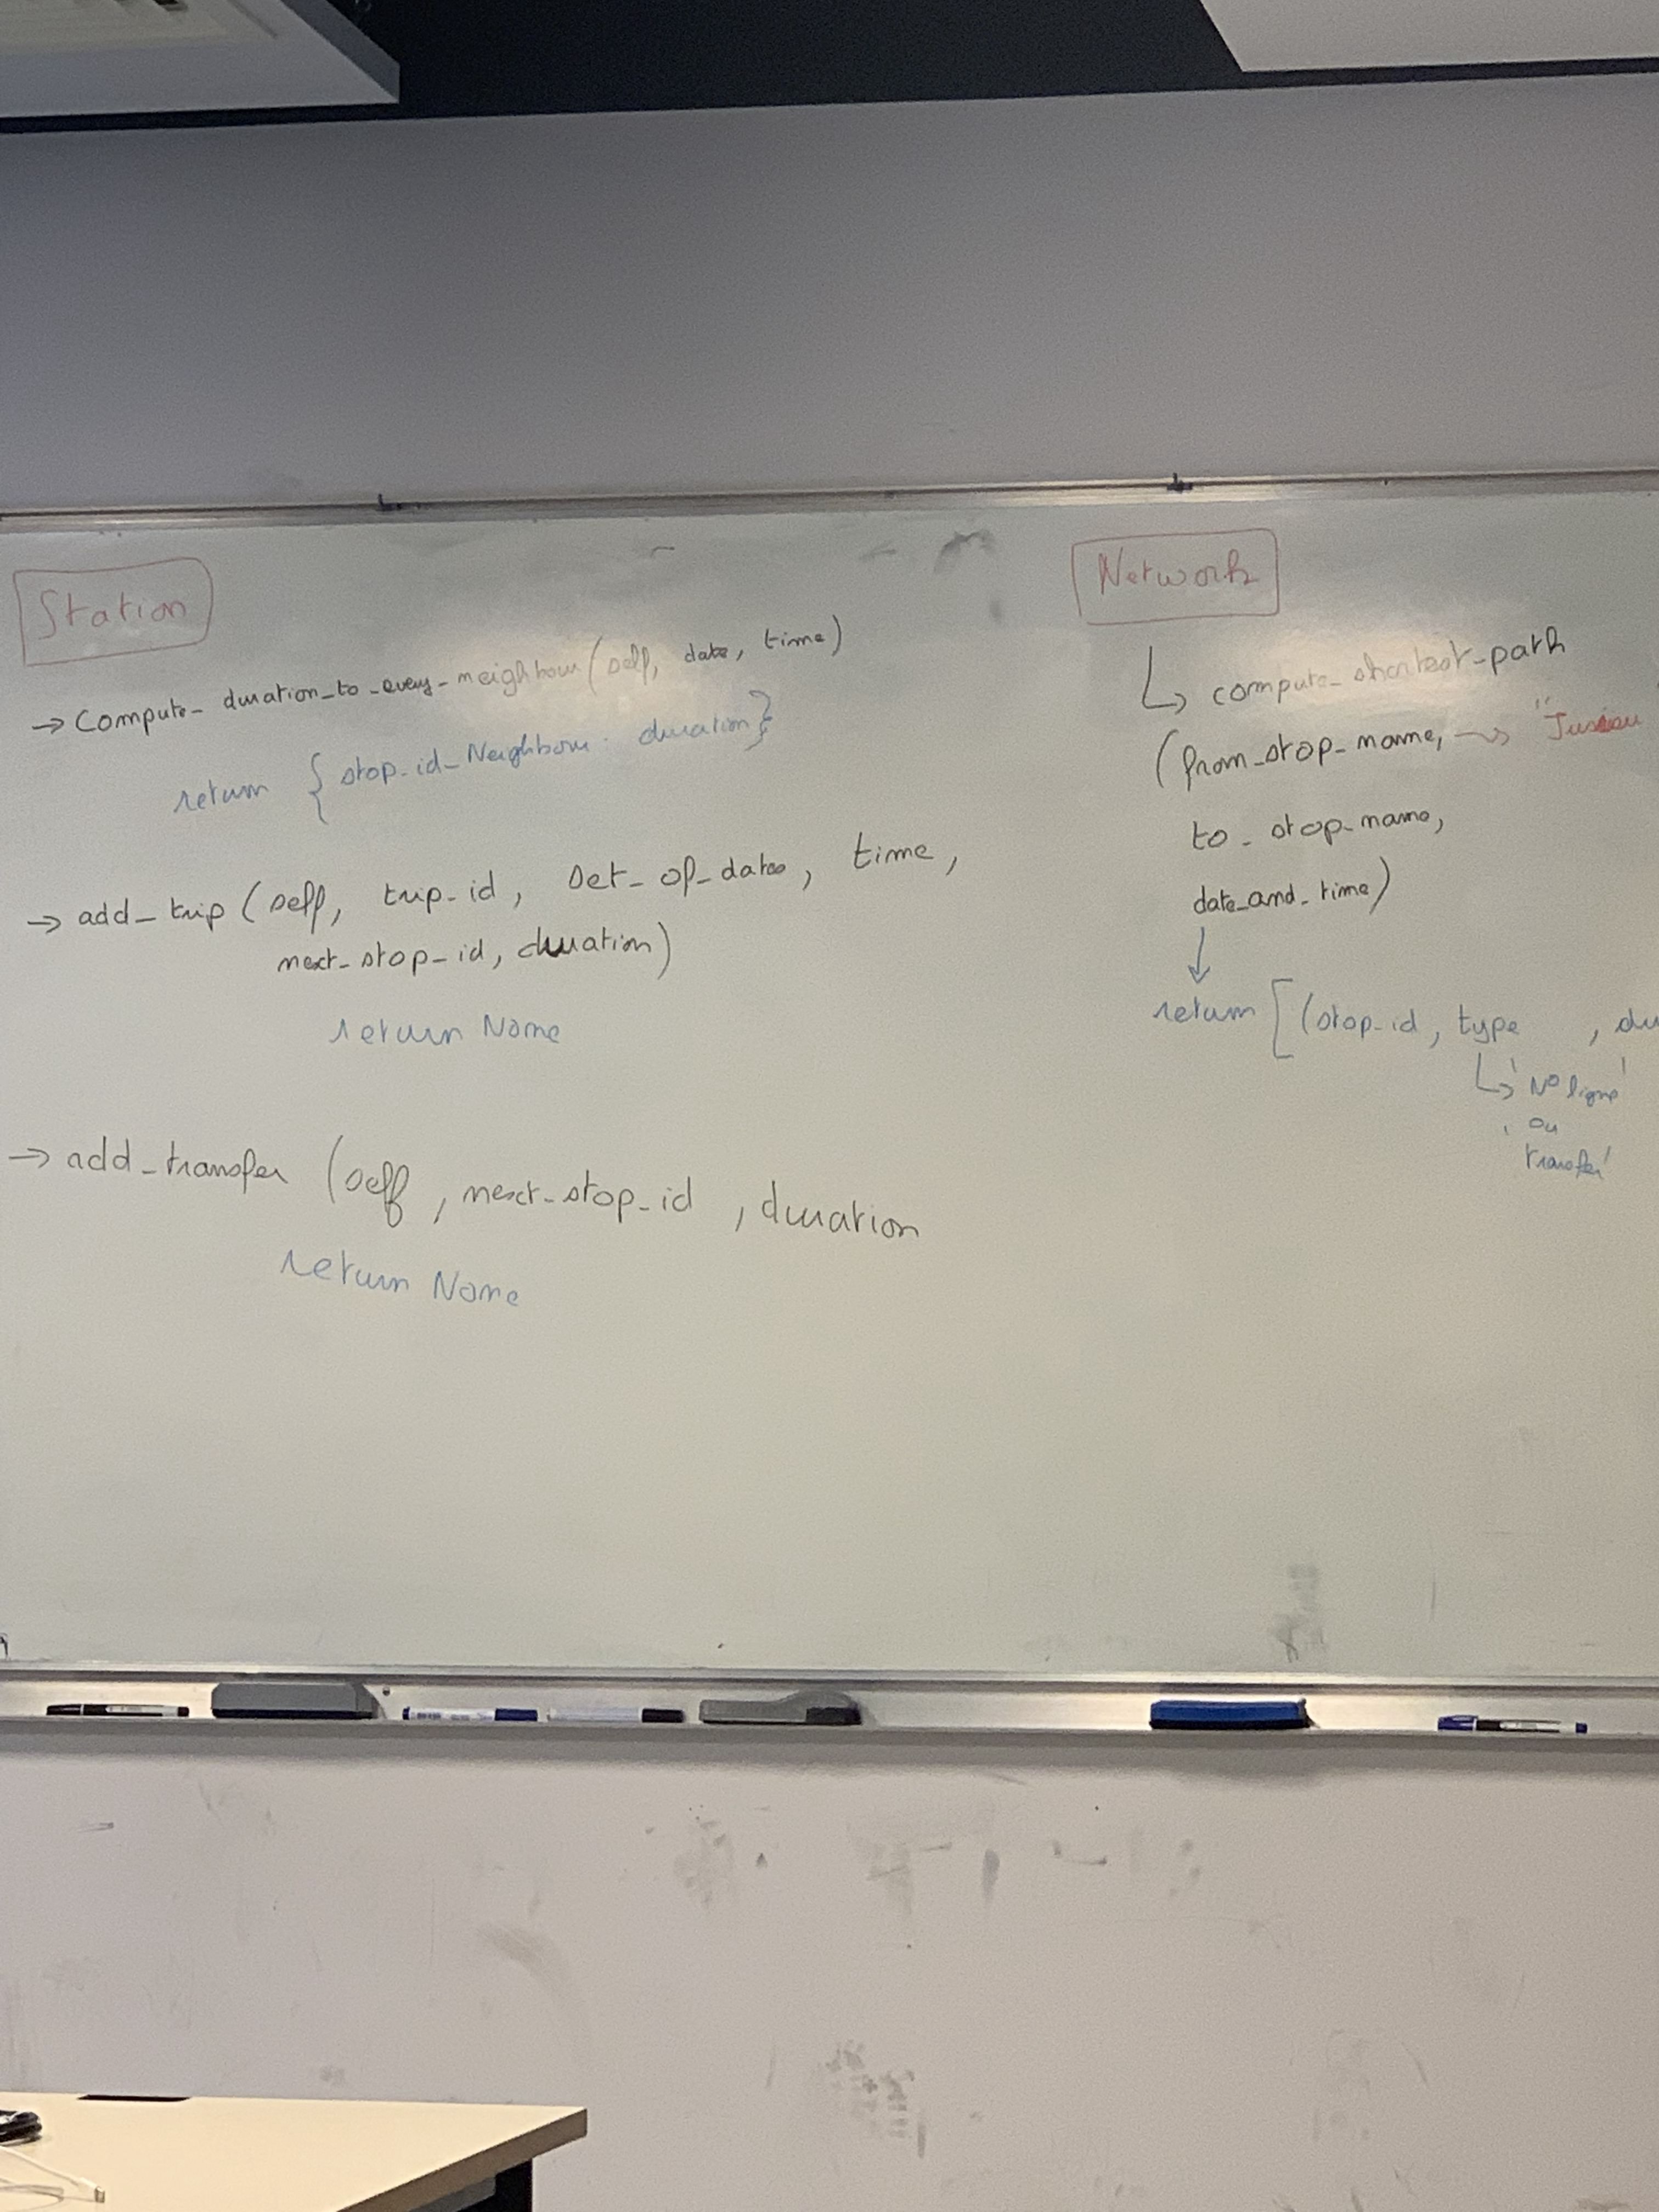 Station
→ Compute_duration_to_every_neighbour(self, date, time)
return {stop_id_Neighbour: duration}
→ add_trip(self, trip_id, set_of_dates, time,
next_stop_id, duration)
return None
→ add_transfer (self, next_stop_id, duration
return None
Network
↳ compute_shortest_path
(from_stop_name, → "Jussieu
to_stop_name,
date_and_time)
↓
return [(stop_id, type , du
↳ 'N° ligne'
ou
'transfer'